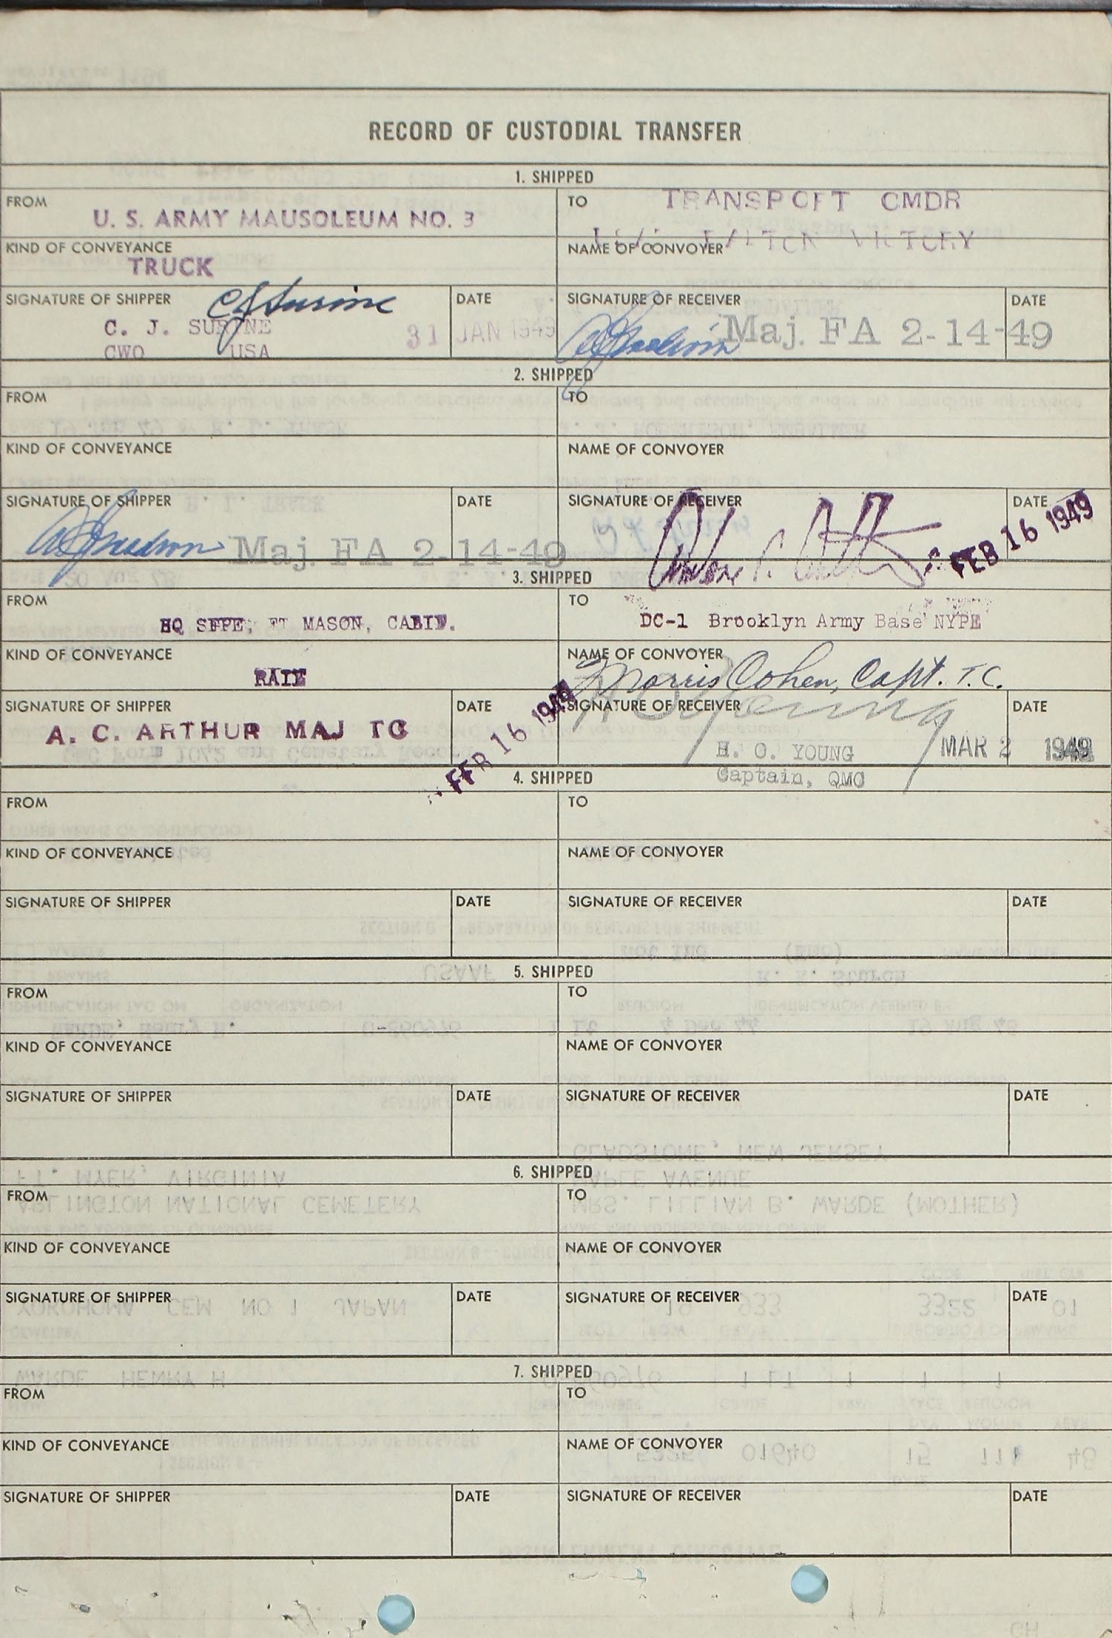 RECORD OF CUSTODIAL TRANSFER
1. SHIPPED
FROM
U. S. ARMY MAUSOLEUM NO. 3
TO
TRANSPORT CMDR
KIND OF CONVEYANCE
TRUCK
NAME OF CONVOYER
VICTORY
SIGNATURE OF SHIPPER
C J Surine
C. J. SURINE
CWO USA
DATE
31 JAN 1949
SIGNATURE OF RECEIVER
Maj. FA 2-14-49
DATE
2. SHIPPED
FROM
TO
KIND OF CONVEYANCE
NAME OF CONVOYER
SIGNATURE OF SHIPPER
Maj. FA 2-14-49
DATE
SIGNATURE OF RECEIVER
DATE
FEB 16 1949
3. SHIPPED
FROM
HQ SFPE, FT MASON, CALIF.
TO
DC-1 Brooklyn Army Base NYPE
KIND OF CONVEYANCE
RAIL
NAME OF CONVOYER
Morris Cohen, Capt. T.C.
SIGNATURE OF SHIPPER
A. C. ARTHUR MAJ TC
DATE
FEB 16 1949
SIGNATURE OF RECEIVER
H O Young
H. O. YOUNG
Captain, QMC
DATE
MAR 2 1949
4. SHIPPED
FROM
TO
KIND OF CONVEYANCE
NAME OF CONVOYER
SIGNATURE OF SHIPPER
DATE
SIGNATURE OF RECEIVER
DATE
5. SHIPPED
FROM
TO
KIND OF CONVEYANCE
NAME OF CONVOYER
SIGNATURE OF SHIPPER
DATE
SIGNATURE OF RECEIVER
DATE
6. SHIPPED
FROM
TO
KIND OF CONVEYANCE
NAME OF CONVOYER
SIGNATURE OF SHIPPER
DATE
SIGNATURE OF RECEIVER
DATE
7. SHIPPED
FROM
TO
KIND OF CONVEYANCE
NAME OF CONVOYER
SIGNATURE OF SHIPPER
DATE
SIGNATURE OF RECEIVER
DATE